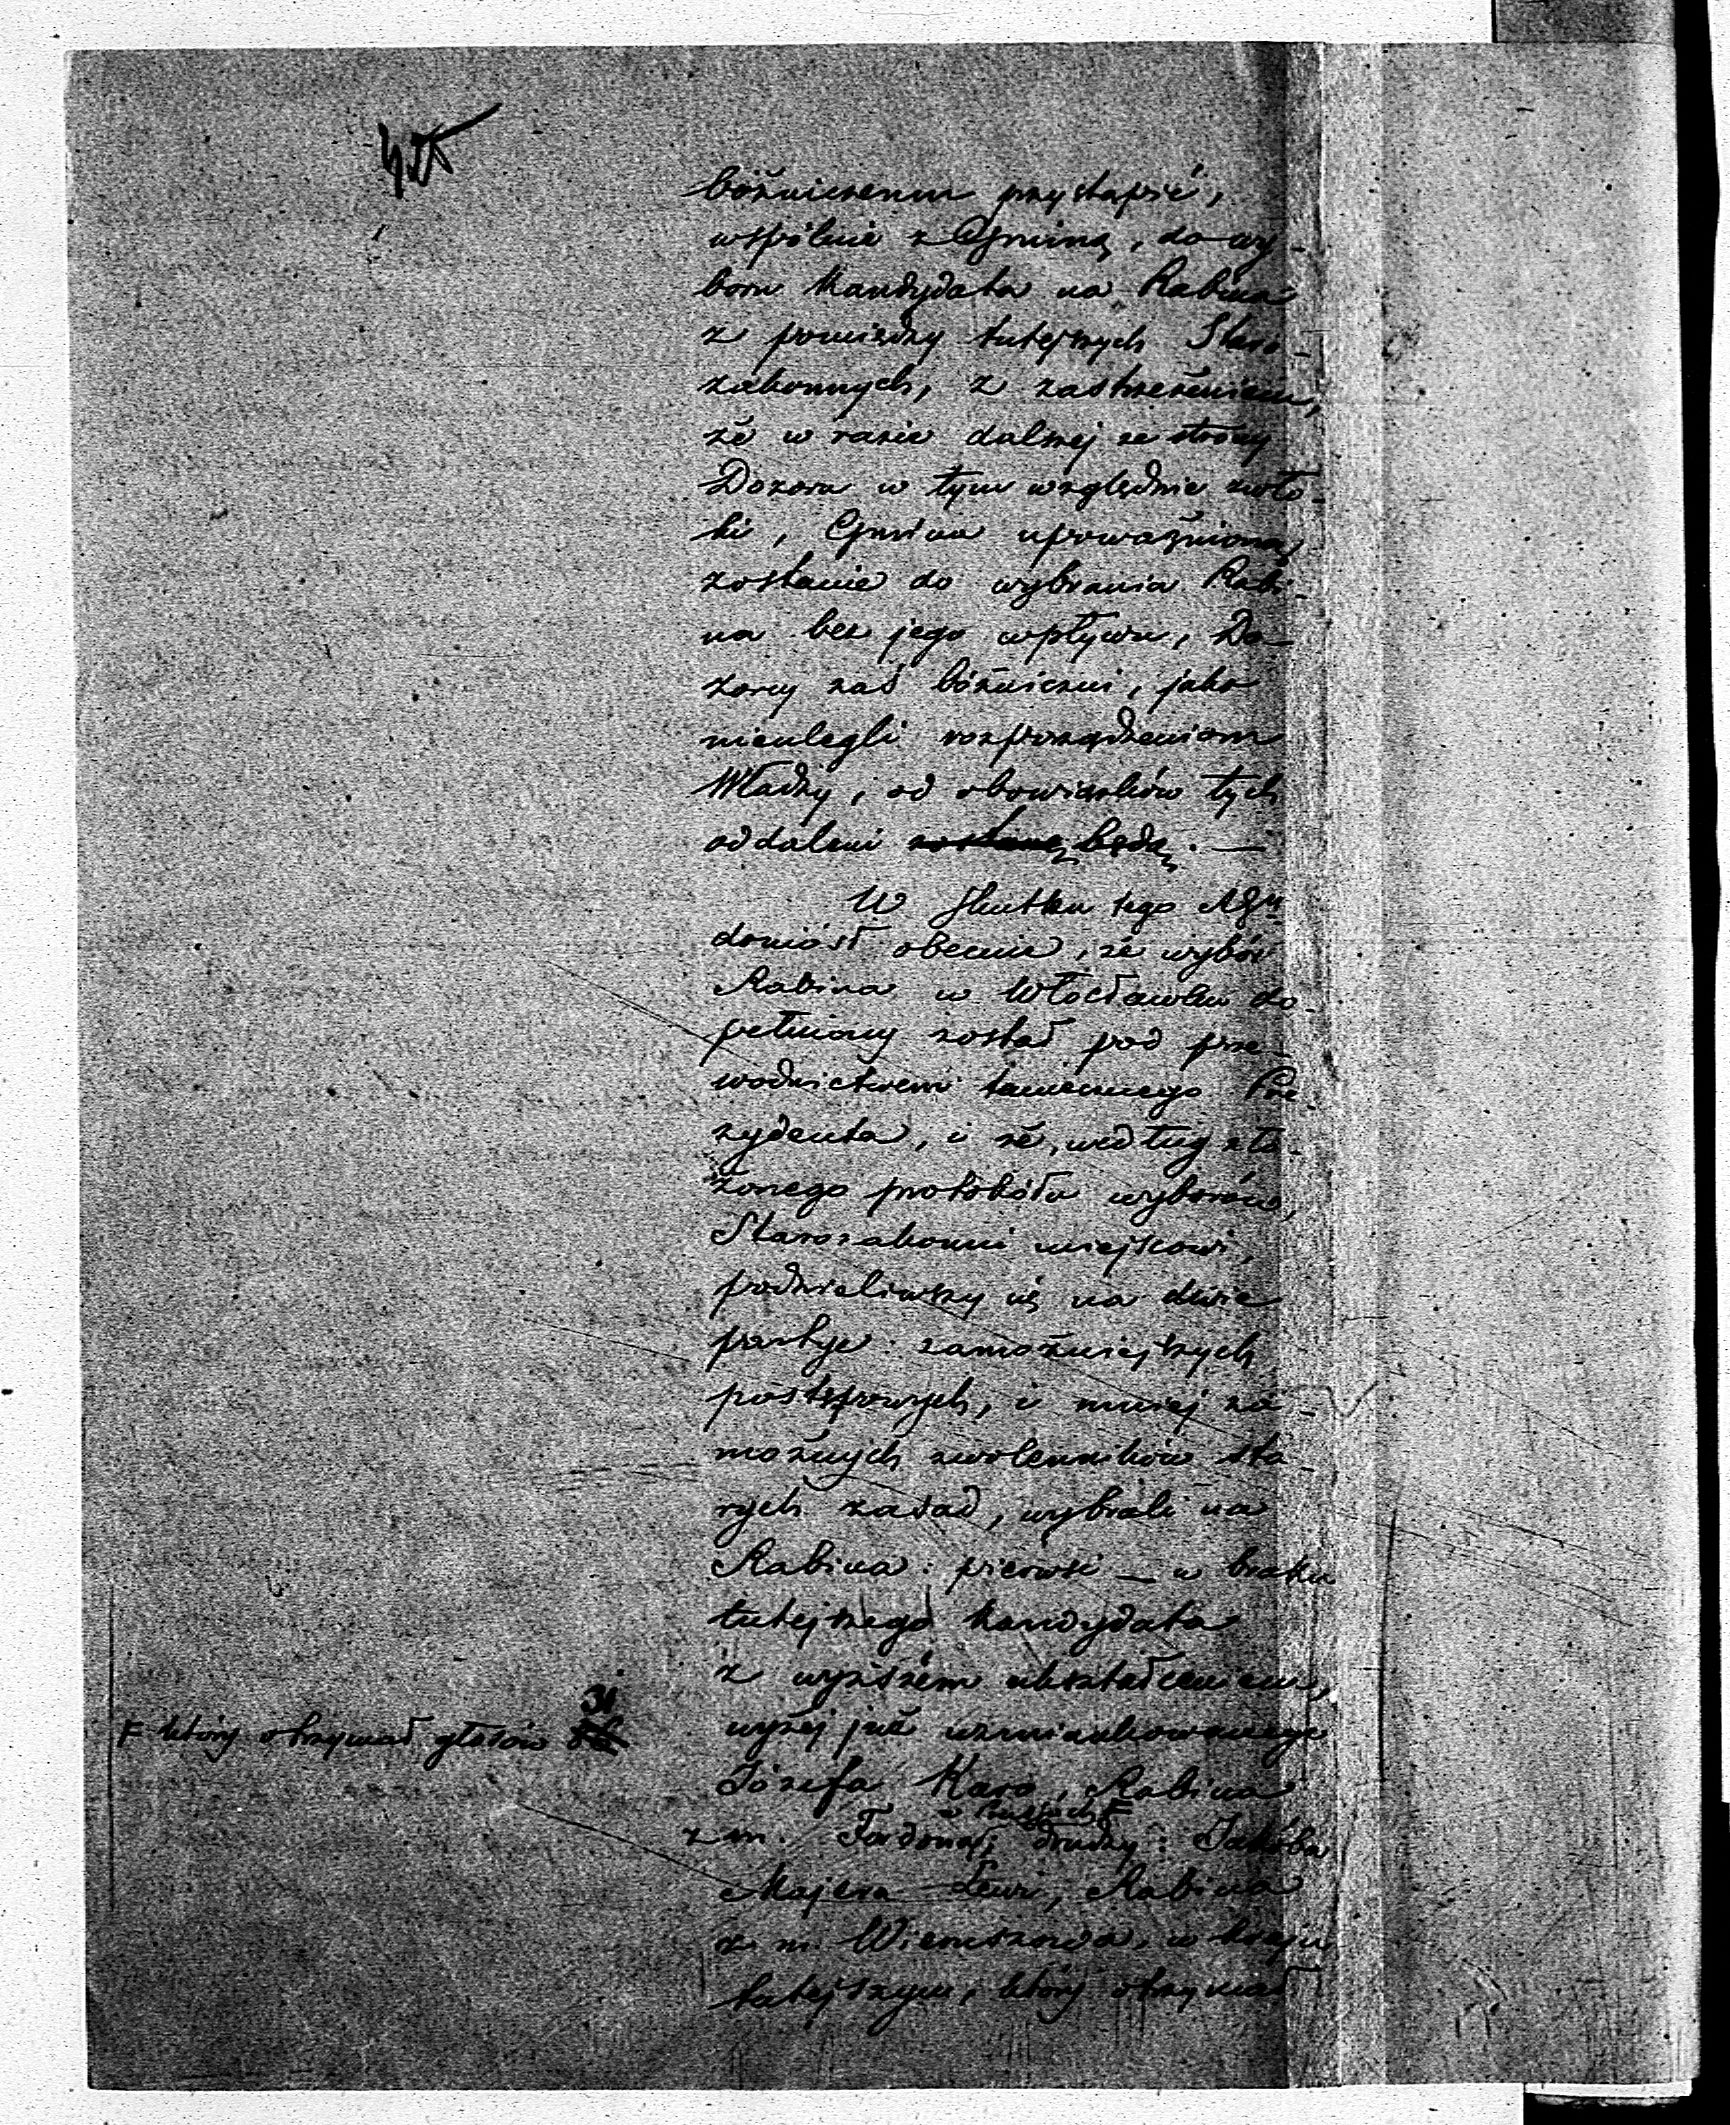 bóżniczemu przystąpić,
wspólnie z Gminą, do wy-
boru Kandydata na Rabina
z pomiędzy tutejszych Staro-
zakonnych, z zastrzeżeniem,
że w razie dalszej ze strony
Dozoru w tym względzie zwło-
ki, Gmina upoważnioną
zostanie do wybrania Rabi-
na bez jego wpływu, Do-
zorcy zaś bóżniczni, jako
nieulegli rozporządzeniom
Władzy, od obowiązków tych
oddaleni zostaną będą. —
W skutku tego
doniósł obecnie, że wybór
Rabina w Włocławku do-
pełniony został pod prze-
wodnictwem tamecznego Pre-
zydenta, i że, według zło-
żonego protokółu wyborów,
Starozakonni miejscowi,
podzieliwszy się na dwie
partye: zamożniejszych
postępowych, i mniej za-
możnych zwolenników sta-
rych zasad, wybrali na
Rabina: pierwsi — w braku
tutejszego kandydata
z wyższem ukształceniem,
wyżej już wzmiankowanego
Józefa Karo, Rabina
z m. Fordona, w Prusach F drudzy: Jakóba
Majera Lewi, Rabina
z m. Wieruszowa, w kraju
tutejszym, który otrzymał
F który otrzymał głosów 31